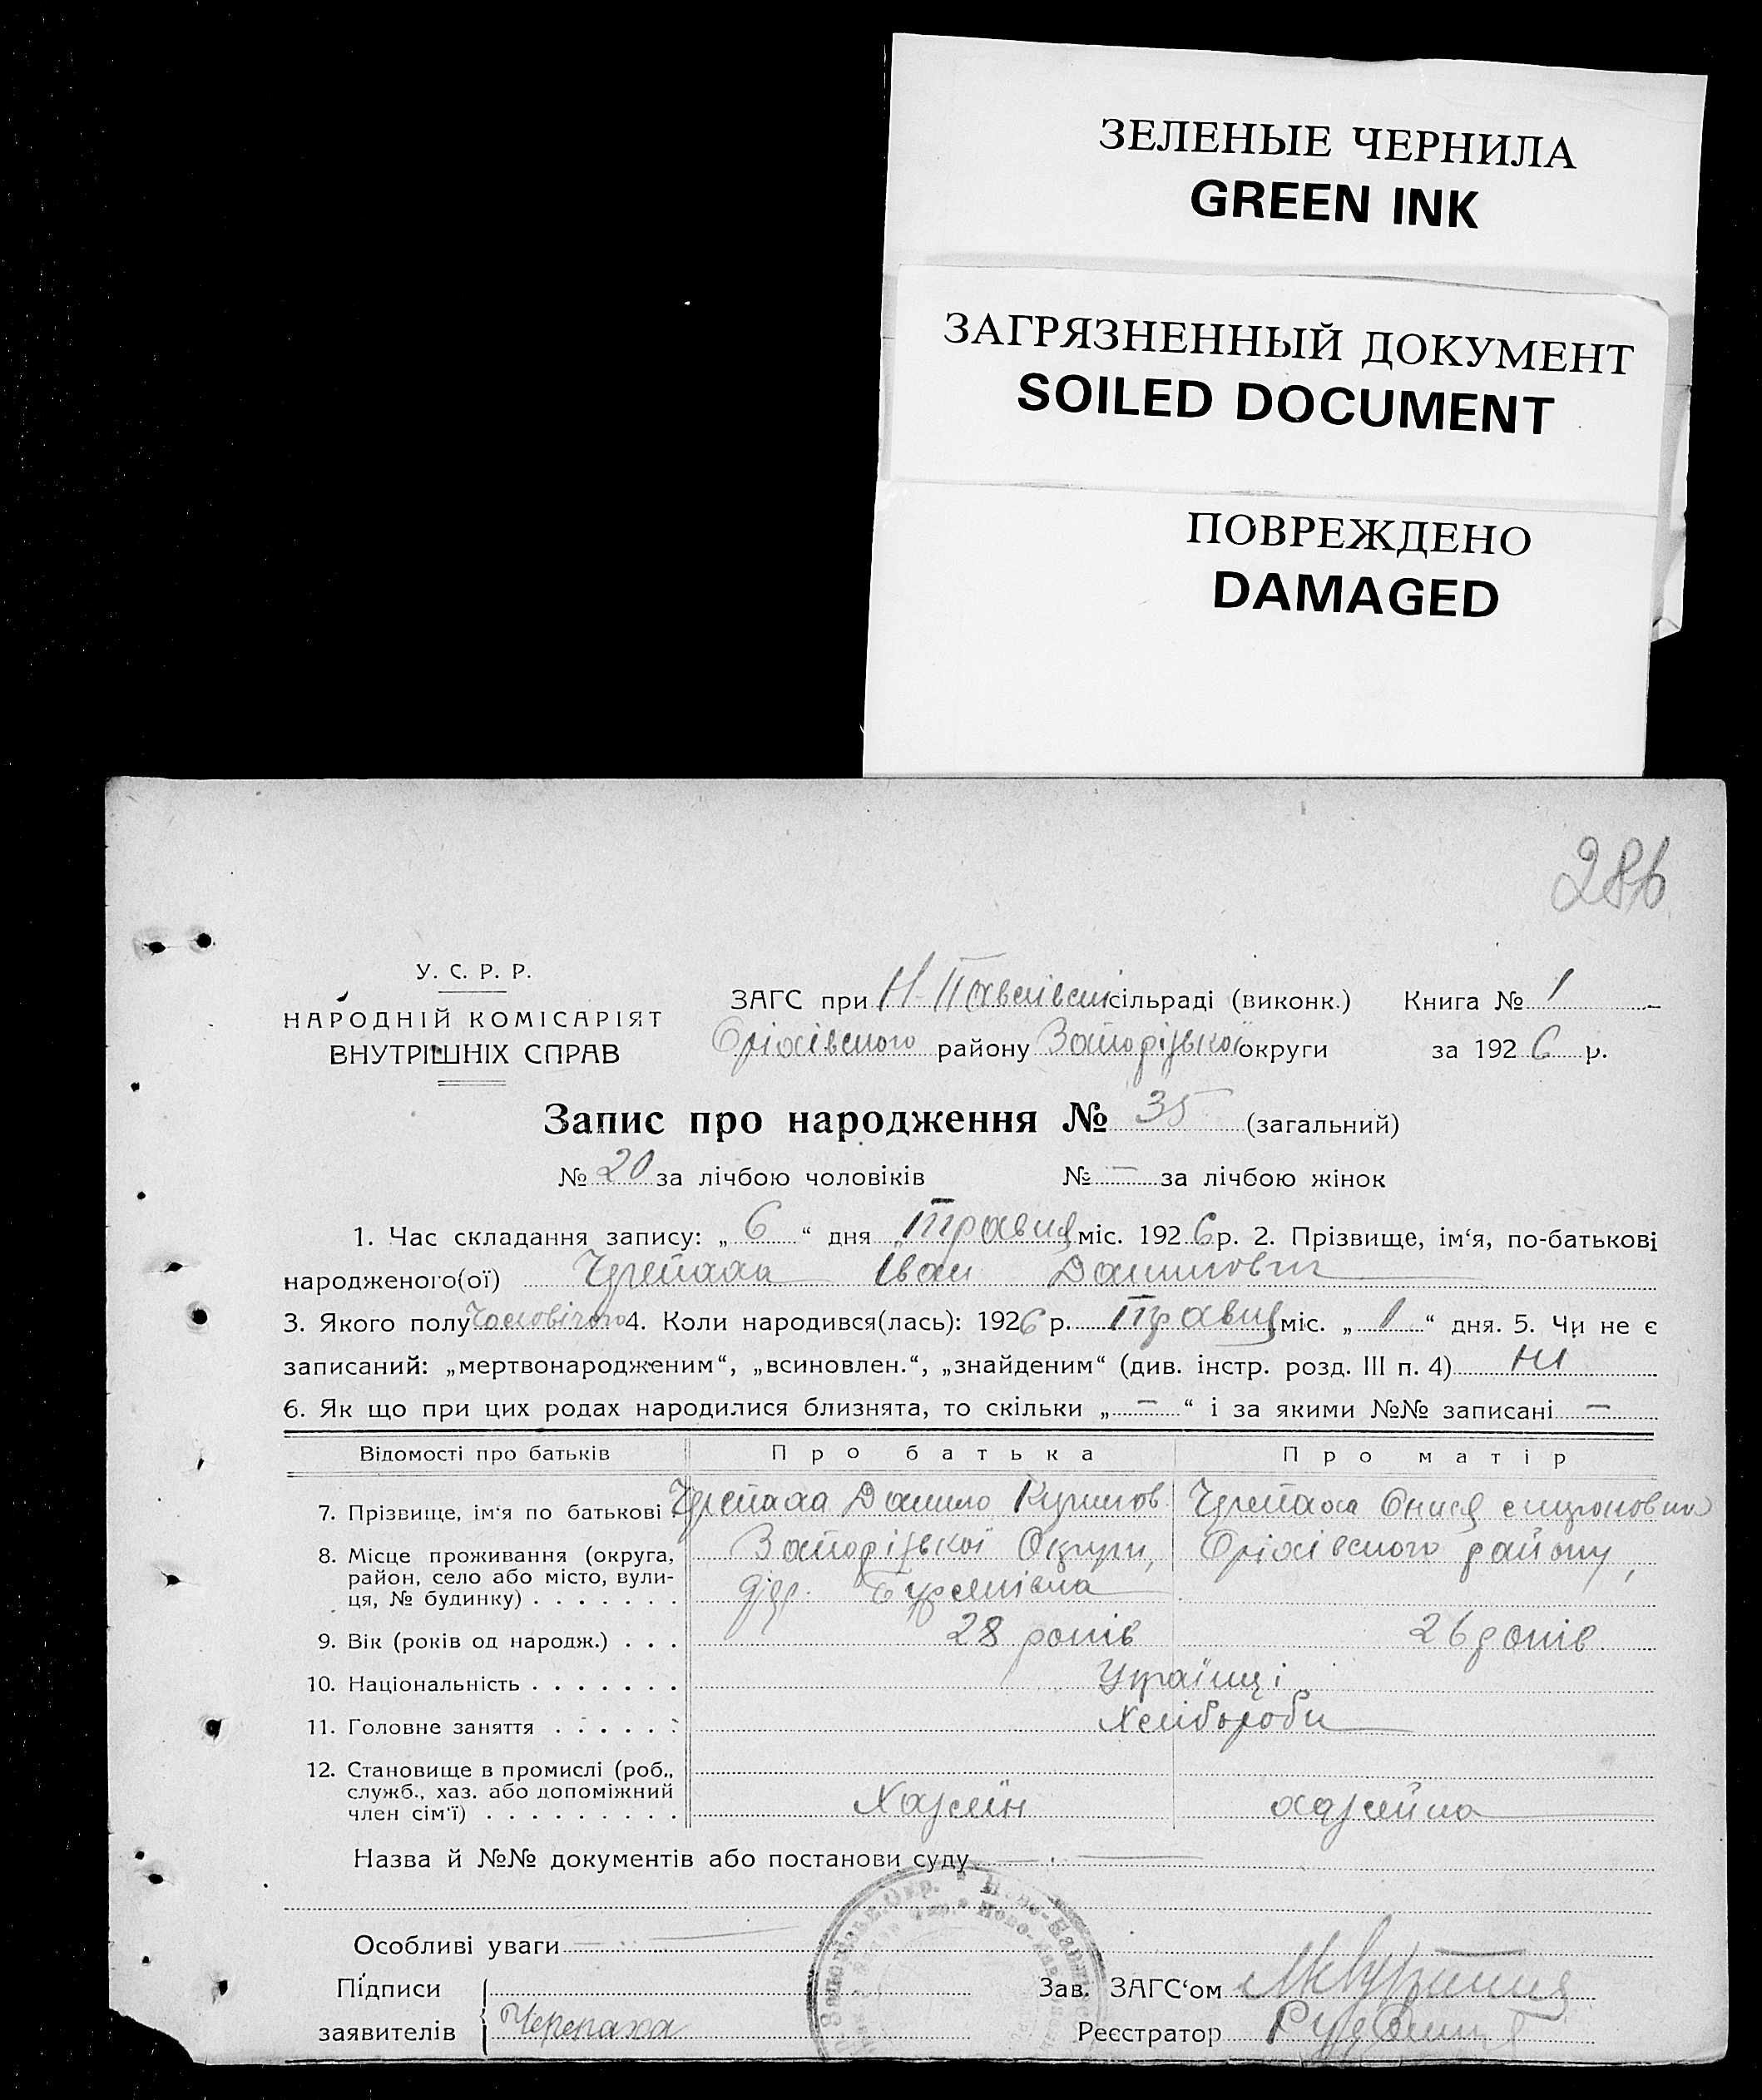 ЗЕЛЕНЫЕ ЧЕРНИЛА
GREEN INK
ЗАГРЯЗНЕННЫЙ ДОКУМЕНТ
SOILED DOCUMENT
ПОВРЕЖДЕНО
DAMAGED
286
У. С. Р. Р.
НАРОДНІЙ КОМІСАРІЯТ
ВНУТРІШНІХ СПРАВ
ЗАГС при Н-Павлівськ сільраді (виконк.) Книга № 1
Оріхівського району Запорізької округи за 1926 р.
Запис про народження № 35 (загальний)
№ 20 за лічбою чоловіків № — за лічбою жінок
1. Час складання запису: „ 6 “ дня Травця міс. 1926 р. 2. Прізвище, ім‘я, по-батькові
народженого(ої) Черепаха Іван Данилович
3. Якого полу Чоловічого 4. Коли народився(лась): 1926 р. Травця міс. „ 1 “ дня. 5. Чи не є
записаний: „мертвонародженим“, „всиновлен.“, „знайденим“ (див. інстр. розд. III п. 4) Ні
6. Як що при цих родах народилися близнята, то скільки „ — “ і за якими №№ записані —
Відомості про батьків Про батька Про матір
7. Прізвище, ім‘я по батькові Черепаха Данило Кирилов. Черепаха Онися
8. Місце проживання (округа, Запорізької Округи, Оріхівського району,
район, село або місто, вули-
ця, № будинку) . . . . . . .
9. Вік (років од народж.) . . . 28 років 26 років
10. Національність . . . . . . . Українці
11. Головне заняття . . . . . . Хлібороби
12. Становище в промислі (роб.,
служб., хаз. або допоміжний
член сім‘ї) . . . . . . . . . Хазяїн хазяйка
Назва й №№ документів або постанови суду —
Особливі уваги —
Підписи Зав. ЗАГС‘ом
заявителів Черепаха Реєстратор